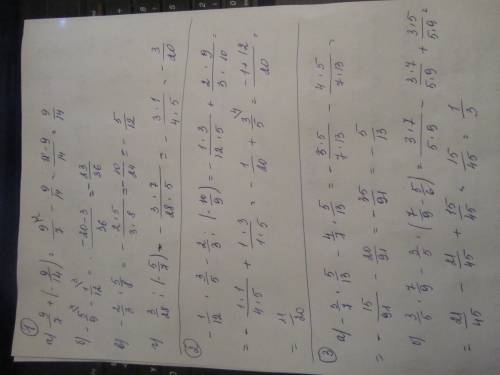 ①
а) 9/7 + (- 9/14) = 9\2/7 - 9/14 = 18-9/14 = 9/14
б) - 5/9 - 3/12 = -20-3/36 = - 23/36
в) - 2/3 · 5/8 = - 2·5/3·8 = - 10/24 = - 5/12
г) 3/28 : (- 5/7) = - 3·7/28·5 = - 3·1/4·5 = - 3/20
②
- 1/12 : 3/5 - 2/3 : (- 10/9) = - 1·3/12·5 + 2·9/3·10 =
= - 1·1/4·5 + 1·3/1·5 = - 1/20 + 3\4/5 = -1+12/20
= 11/20
③
а) - 3/7 · 5/13 - 4/7 · 5/13 = - 3·5/7·13 - 4·5/7·13 =
= - 15/91 - 20/91 = - 35/91 = - 5/13
б) 3/5 · 7/9 - 3/5 · (7/9 - 5/6) = 3·7/5·9 - 3·7/5·9 + 3·5/5·9 =
21/45 - 21/45 + 15/45 = 15/45 = 1/3